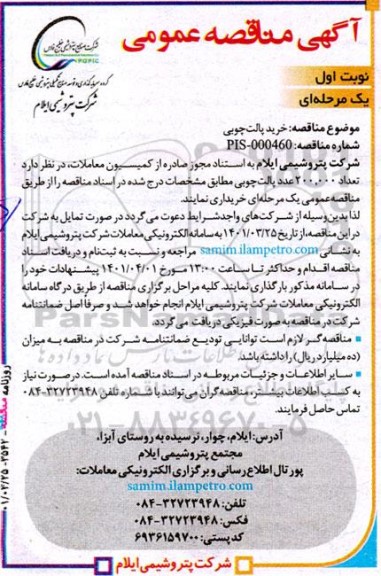 آگهی مناقصه عمومی
شرکت صنایع پتروشیمی خلیج فارس
PGPIC
گروه سرمایه‌گذاری و توسعه صنایع تکمیلی پتروشیمی خلیج فارس
شرکت پتروشیمی ایلام
نوبت اول
یک مرحله‌ای
موضوع مناقصه: خرید پالت چوبی
شماره مناقصه: PIS-000460
شرکت پتروشیمی ایلام به استناد مجوز صادره از کمیسیون معاملات، در نظر دارد
تعداد ۲۰۰,۰۰۰ عدد پالت چوبی مطابق مشخصات درج شده در اسناد مناقصه را از طریق
مناقصه عمومی یک مرحله‌ای خریداری نمایند.
لذا بدین وسیله از شرکت‌های واجد شرایط دعوت می‌گردد در صورت تمایل به شرکت
در این مناقصه، از تاریخ ۱۴۰۱/۰۳/۲۵ به سامانه الکترونیکی معاملات شرکت پتروشیمی ایلام
به نشانی samim.ilampetro.com مراجعه و نسبت به ثبت‌نام و دریافت اسناد
مناقصه اقدام و حداکثر تا ساعت ۱۳:۰۰ مورخ ۱۴۰۱/۰۴/۰۱ پیشنهادات خود را
در سامانه مذکور بارگذاری نمایند. کلیه مراحل برگزاری مناقصه از طریق درگاه سامانه
الکترونیکی معاملات شرکت پتروشیمی ایلام انجام خواهد شد و صرفاً اصل ضمانتنامه
شرکت در مناقصه به صورت فیزیکی دریافت می‌گردد.
- مناقصه‌گر لازم است توانایی تودیع ضمانتنامه شرکت در مناقصه به میزان
(ده میلیارد ریال) را داشته باشد.
- سایر اطلاعات و جزئیات مربوطه در اسناد مناقصه آمده است. در صورت نیاز
به کسب اطلاعات بیشتر، مناقصه‌گران می‌توانند با شماره تلفن ۳۲۷۲۳۹۴۸-۰۸۴
تماس حاصل فرمایند.
آدرس: ایلام، چوار، نرسیده به روستای آبزا،
مجتمع پتروشیمی ایلام
پورتال اطلاع رسانی و برگزاری الکترونیکی معاملات:
samim.ilampetro.com
تلفن: ۳۲۷۲۳۹۴۸-۰۸۴
فکس: ۳۲۷۲۳۹۴۸-۰۸۴
کدپستی: ۶۹۳۶۱۵۹۷۰۰
شرکت پتروشیمی ایلام
ParsNamadData
۰۲۱-۸۸۳۴۹۶۷۰-۵